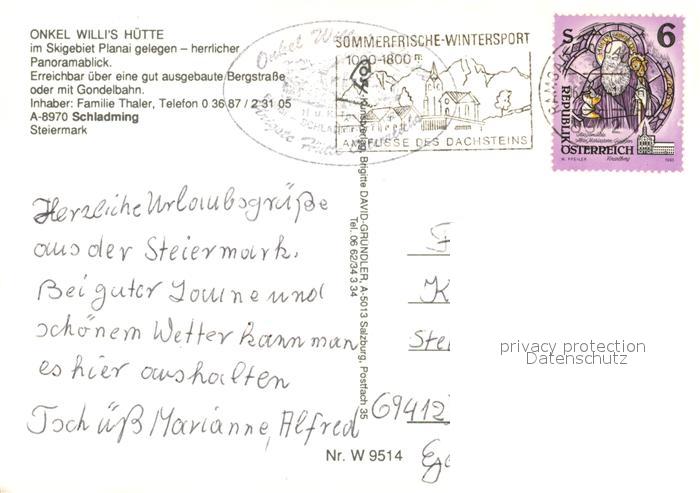 ONKEL WILLI'S HÜTTE
im Skigebiet Planai gelegen – herrlicher
Panoramablick.
Erreichbar über eine gut ausgebaute Bergstraße
oder mit Gondelbahn.
Inhaber: Familie Thaler, Telefon 0 36 87 / 2 31 05
A-8970 Schladming
Steiermark
Onkel Willi
Hütte
SOMMERFRISCHE-WINTERSPORT
1000-1800 m
AM FUSSE DES DACHSTEINS
RAMSAU
S 6
REPUBLIK
ÖSTERREICH
W. PFEILER
1993
Herzliche Urlaubsgrüße
aus der Steiermark.
Bei guter Laune und
schönem Wetter kann man
es hier aushalten
Tschüß Marianne, Alfred
Brigitte DAVID-GRÜNDLER, A-5013 Salzburg, Postfach 35
Tel. 06 62/34 3 34
Nr. W 9514
F
K
Stei
69412
privacy protection
Datenschutz